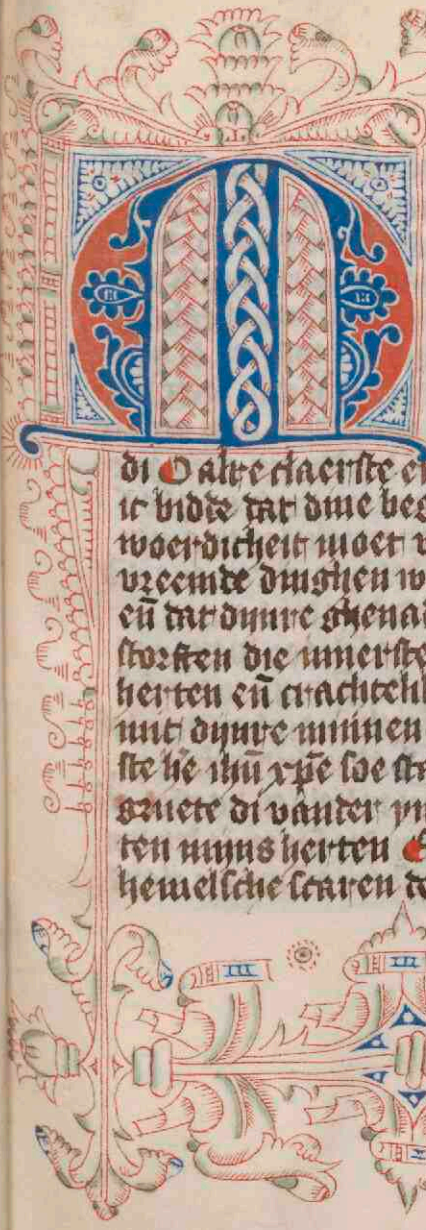 M
di O alre claerste e
ic bidde dat dine beg
woerdicheit moet v
vreemde dinghen w
en̄ dat dijnre ghenad
storften die innerste
herten en̄ crachtel
mit dijnre minnen
ste he ihū xp̄e soe st
gruete di vander yn
ten mijns herten
hemelsche scaren d